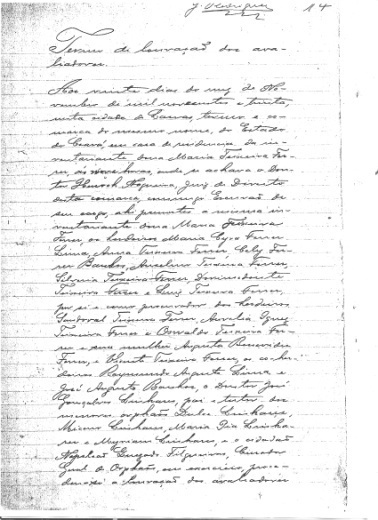 J. Rodrigues 14
Termo de louvação dos ava-
liadores.
Aos vinte dias do mez de No-
vembro de mil novecentos e trinta,
nesta cidade de Lavras, termo e co-
marca do mesmo nome, do Estado
do Ceará, em casa de residencia da in-
ventariante dona Maria Teixeira Fer-
rer, ás nove horas, onde se achava o Dou-
tor Nogueira, Juiz de Direito
desta comarca, commigo Escrivão de
seu cargo, ahi presentes a mesma in-
ventariante dona Maria Teixeira
Ferrer, os herdeiros Maria Ferrer
Lima, Anna Teixeira Ferrer, Fer-
rer Banhos, Anselmo Teixeira Ferrer,
Teixeira Ferrer,
Teixeira Ferrer e Luiz Teixeira Ferrer,
por si e como procurador dos herdeiros
Teixeira Ferrer, Aurelia
Teixeira Ferrer e Oswaldo Teixeira Fer-
rer e sua mulher Augusta
Ferrer, e Vicente Teixeira Ferrer, os co-her-
deiros Raymundo Augusto Lima e
José Augusto Banhos, o Doutor José
Gonçalves Linhares, por e tutor dos
menores orphãos Dulce Linhares,
Linhares, Maria Linha-
res e Myriam Linhares, e o cidadão
Napoleão Filgueiras, Curador
Geral de Orphãos, em exercicio, proce-
deu-se a louvação dos avaliadores